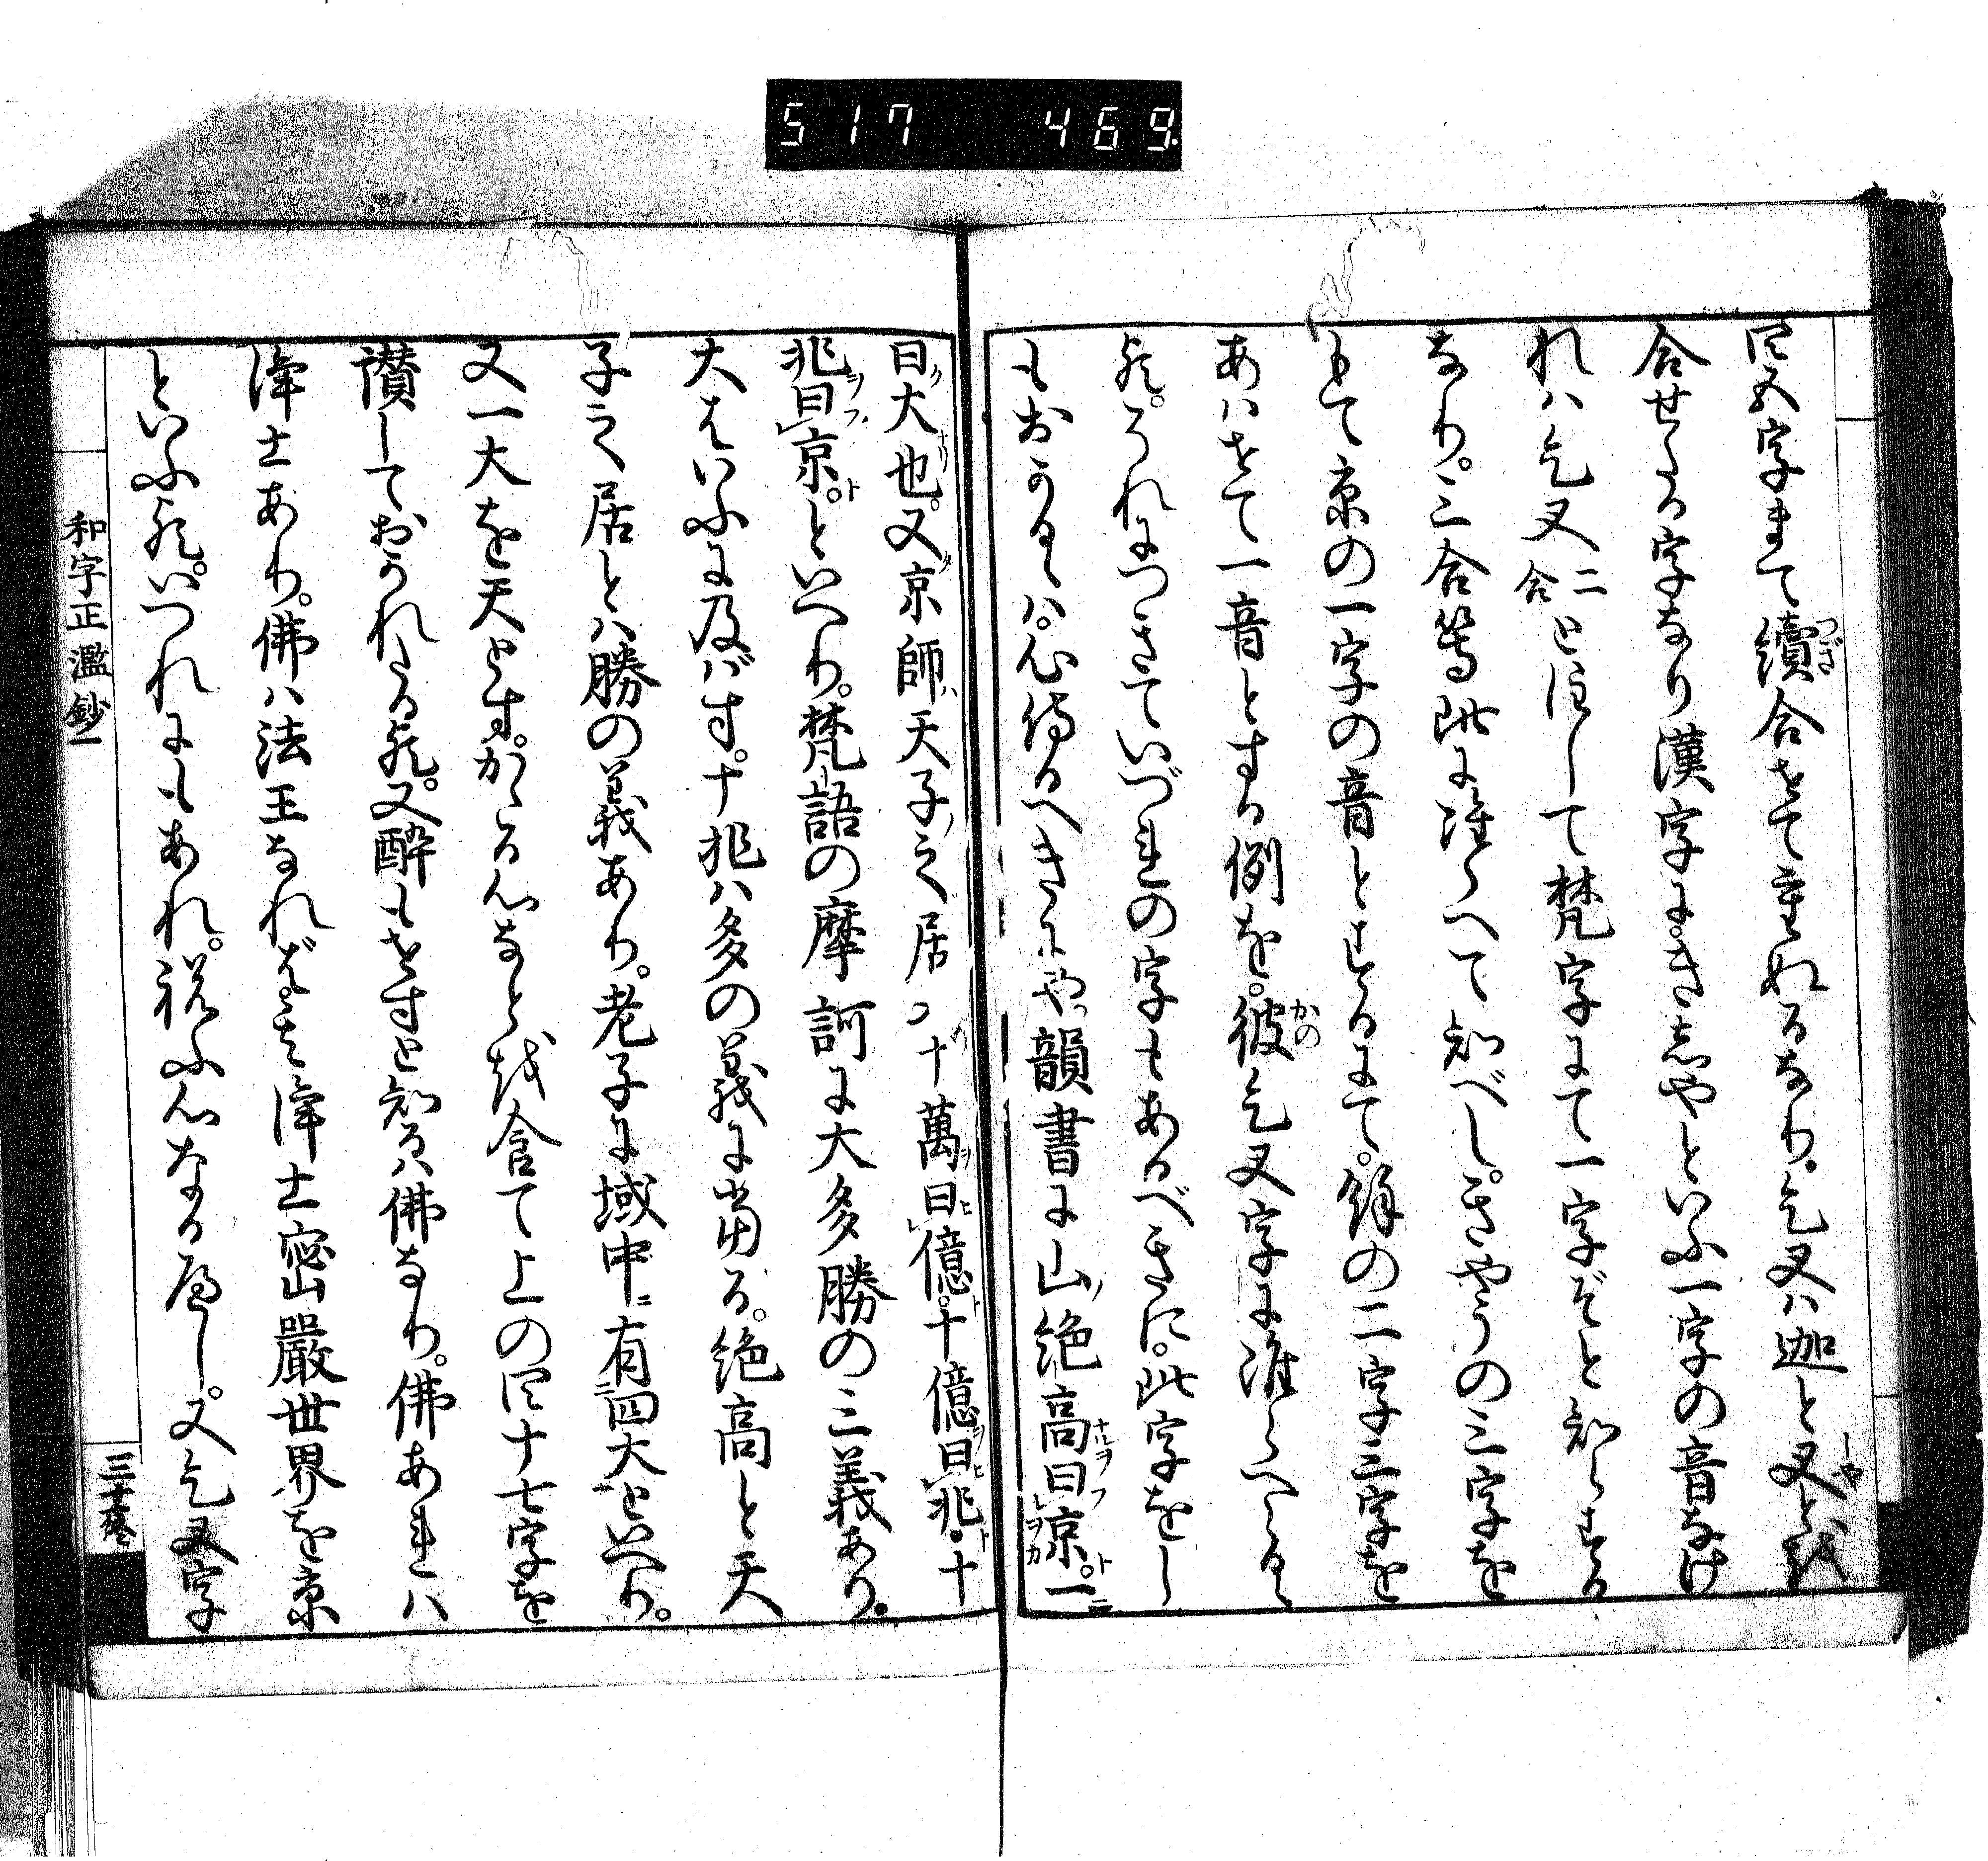 517 469
四五字まて續合せて重ぬるなり。乞叉ハ迦と叉とを
合せたる字なり漢字にきしやといふ一字の音なけ
れハ乞叉二合と注して梵字にて一字ぞと知らする
なり。三合等此に准らへて知べし。きやうの三字を
もて京の一字の音とするにて。餘の二字三字を
あハせて一音とする例を。彼乞叉字に准らへたる
歟。それにつきていづれの字もあるべきに。此字をし
もおかるゝハ。心得るへきにや。韻書に山絶高曰京。一
曰大也。又京師天子之居コ十萬曰億。十億曰兆。十
兆曰京。といへり。梵語の摩訶に大多勝の三義あり。
大はいふに及バす。十兆ハ多の義に當る。絶高と天
子之居とハ勝の義あり。老子に域中ニ有四大といへり。
又一大を天とす。かゝる心なとを含て上の四十七字を
讃しておかれたる歟。又酔もせすと知るハ佛なり。佛あれハ
淨土あり。佛ハ法王なれば其淨土密嚴世界を京
といふ歟。いつれにもあれ。祝ふ心なるへし。又乞叉字
和字正濫鈔一
三十終